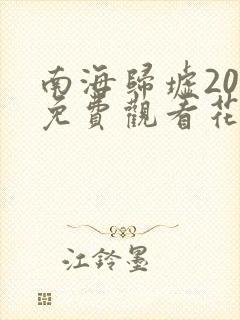 南海歸墟20
免費觀看花
江鈴墨